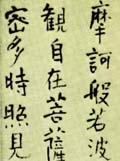 摩訶般若波
観自在菩薩
密多時照見